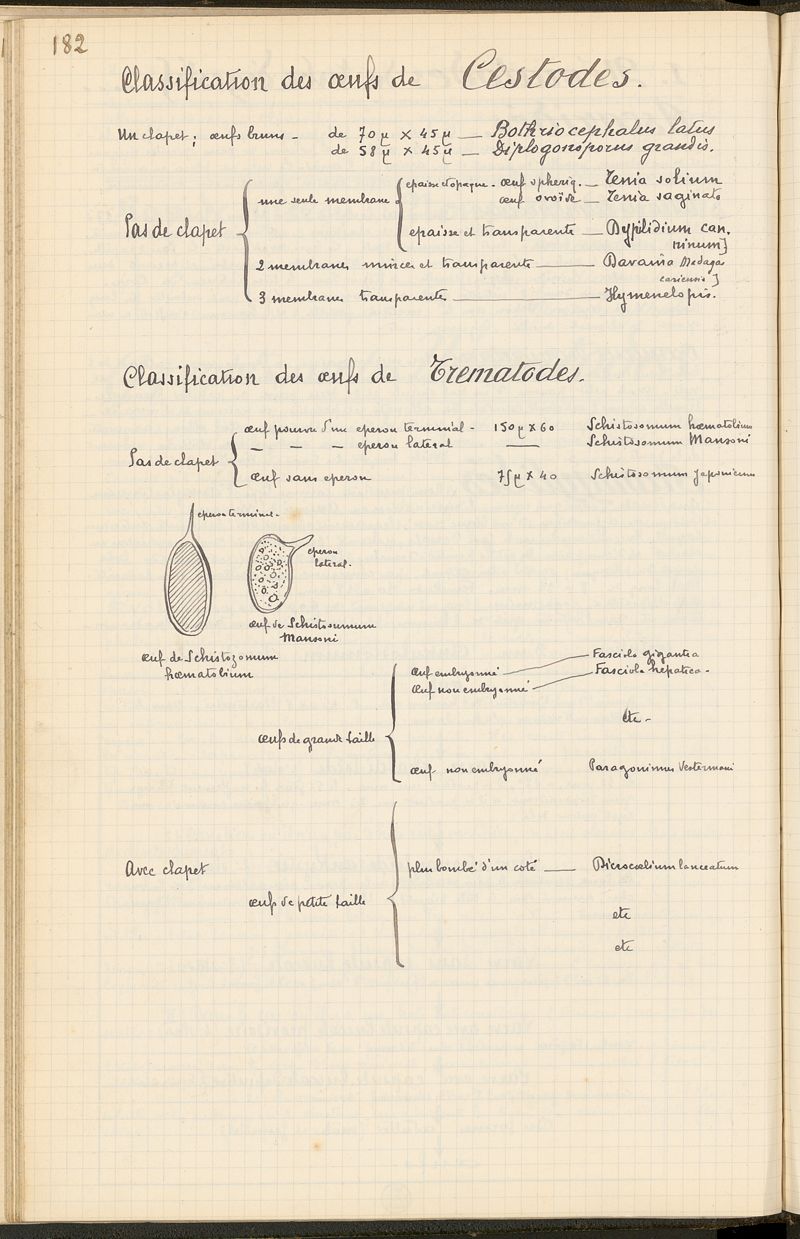 182
Classification des œufs de Cestodes.
Un clapet; œufs bruns - de 70µ × 45µ — Bothriocephalus latus
de 58µ × 45µ — Diplogonoporus grandis.
Pas de clapet
une seule membrane
epaisse et opaque - œuf spheriq. — Tenia solium
œuf ovoïde — Tenia saginata
epaisse et transparente — Dypilidium can.
ninum]
2 membranes minces et transparente — Davainia Madagas
cariensis]
3 membranes transparentes — Hymenelopis.
Classification des œufs de Trematodes.
Pas de clapet
œuf pourvu d'un eperon terminal - 150µ × 60 Schistosomum hæmatobium
— — — eperon lateral — Schistosomum Mansoni
œuf sans eperon 75µ × 40 Schistosomum japonicum
eperon terminal.
eperon
lateral.
œuf de Schistosumum
Mansoni
œuf de Schistozomum
hæmatobium
œufs de grande taille
œuf embryonné — Fasciola gigantea
œuf non embryonné — Fasciola hepatica.
etc -
œuf non embryonné Paragonimus Vestermani
Avec clapet
œufs de petite taille
plus bombé d'un coté — Dicrocœlium lanceatum
etc
etc